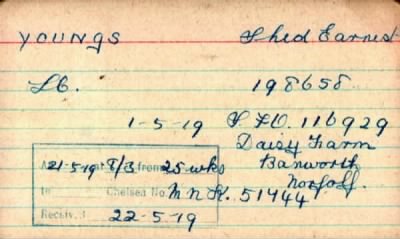 YOUNGS Shed Earnest
Lb. 198658
1-5-19 S.F.O. 116929
Daisy Farm
Banworth
Norfolf.
21-5-19 8/3 from 25 wks
In Chelsea No. M.N.K. 51444
Receiv.d 22-5-19